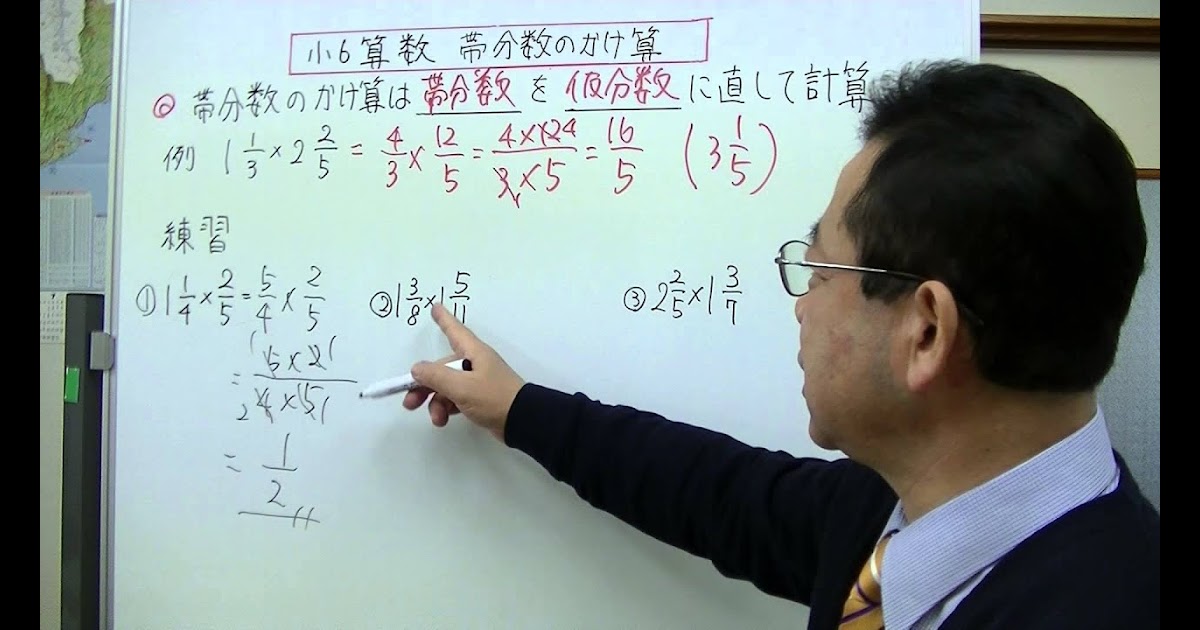 小6算数 帯分数のかけ算
◎ 帯分数のかけ算は帯分数を仮分数に直して計算
例 1 1/3 × 2 2/5 = 4/3 × 12/5 = 4×12 4/3 1×5 = 16/5 (3 1/5)
練習
① 1 1/4 × 2/5 = 5/4 × 2/5
② 1 3/8 × 1 5/11
③ 2 2/5 × 1 3/7
= 1 5×2 1/2 4×5 1
= 1/2